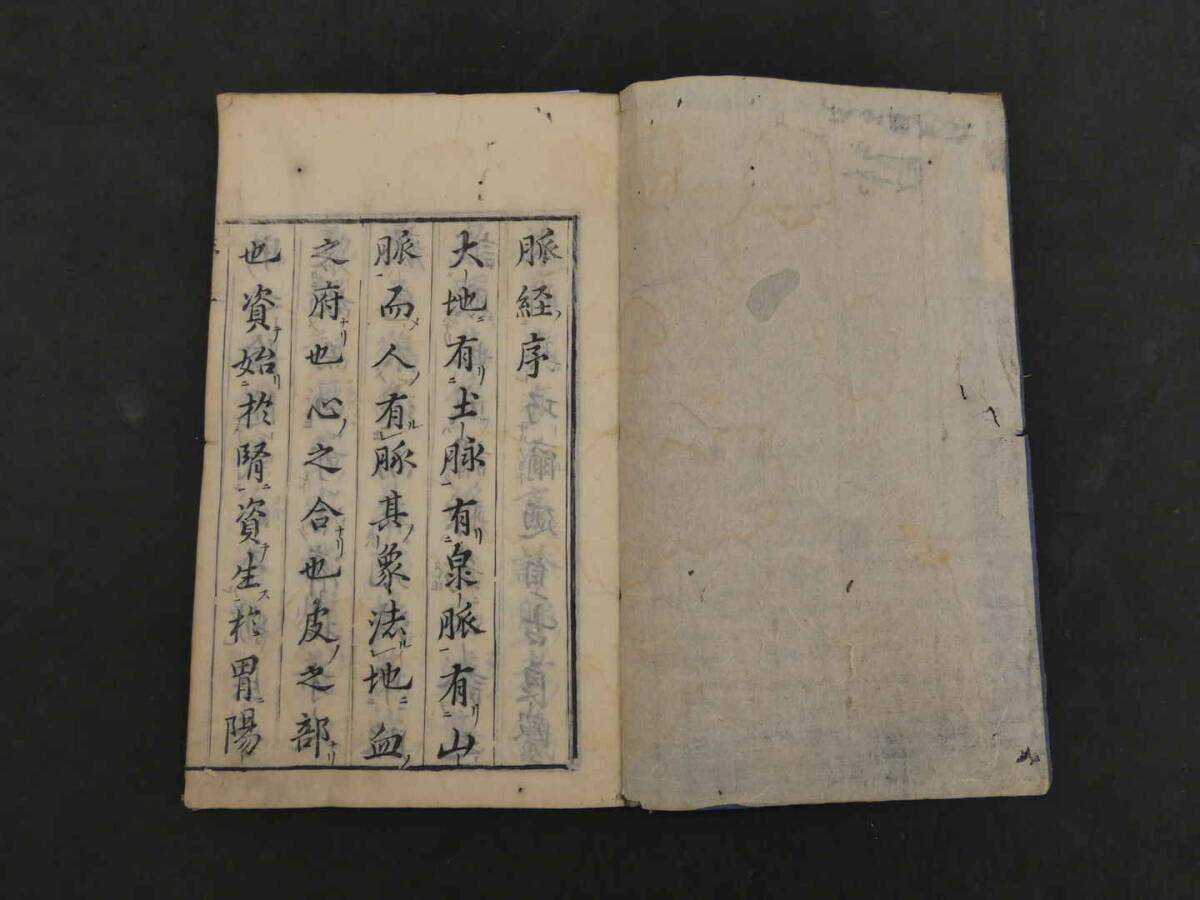 脈経序
大地有土脉有泉脈有山
脈而人有脉其象法地血
之府也心之合也皮之部
也資始於腎資生於胃陽